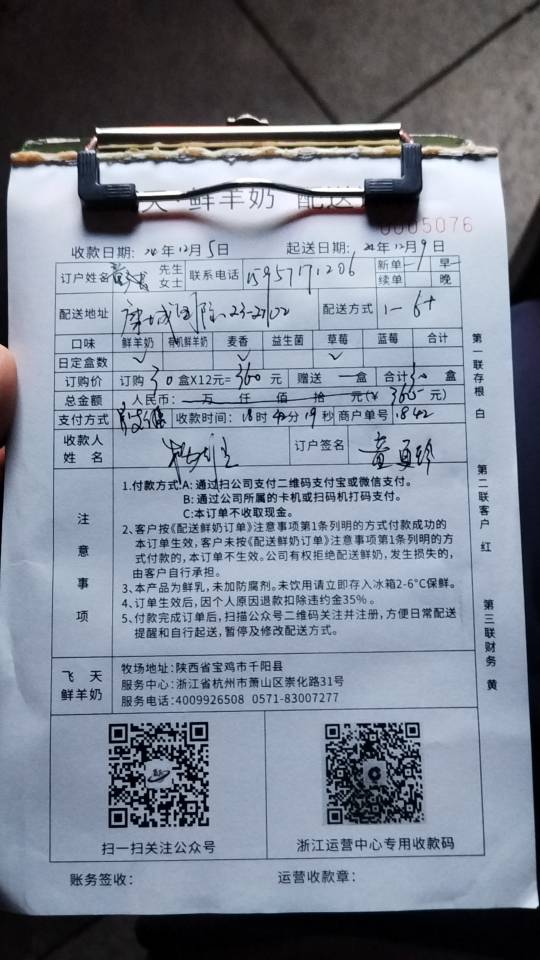 天·鲜羊奶 配送
0005076
收款日期: 24年12月5日 起送日期: 24年12月9日
订户姓名 先生 女士 联系电话 15957171206 新单 早
续单 晚
配送地址 23-2702 配送方式 1-6
口味 鲜羊奶 有机鲜羊奶 麦香 益生菌 草莓 蓝莓 合计
日定盒数 ✓ ✓ ✓
订购价 订购 30 盒X12元= 360 元 赠送 盒 合计 30 盒
总金额 人民币: 万 仟 佰 拾 元(¥ 365 元)
支付方式 收款时间: 18时42分19秒 商户单号: 1842
收款人
姓 名
订户签名 童夏珍
注意事项
1.付款方式:A: 通过扫公司支付二维码支付宝或微信支付。
B: 通过公司所属的卡机或扫码机打码支付。
C:本订单不收取现金。
2、客户按《配送鲜奶订单》注意事项第1条列明的方式付款成功的
本订单生效, 客户未按《配送鲜奶订单》注意事项第1条列明的方
式付款的, 本订单不生效。公司有权拒绝配送鲜奶, 发生损失的,
由客户自行承担。
3、本产品为鲜乳, 未加防腐剂。未饮用请立即存入冰箱2-6°C保鲜。
4、订单生效后, 因个人原因退款扣除违约金35% 。
5、付款完成订单后, 扫描公众号二维码关注并注册, 方便日常配送
提醒和自行起送, 暂停及修改配送方式。
飞 天
鲜羊奶
牧场地址: 陕西省宝鸡市千阳县
服务中心: 浙江省杭州市萧山区崇化路31号
服务电话: 4009926508 0571-83007277
扫一扫关注公众号 浙江运营中心专用收款码
账务签收: 运营收款章:
第一联存根 白
第二联客户 红
第三联财务 黄